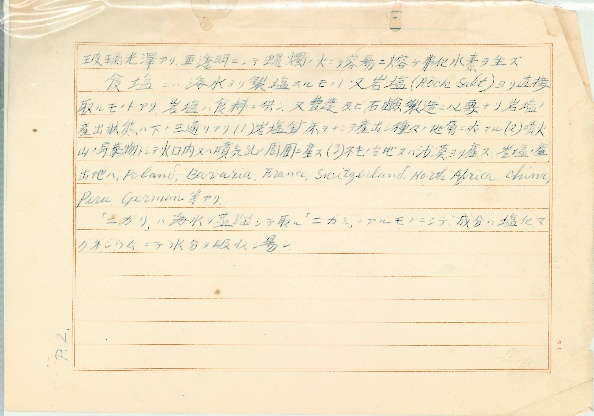 玻璃光澤アリ、亜透明ニシテ蝋燭ノ火ニテ容易ニ熔ケ弗化水素ヲ生ズ
食塩ニハ海水ヨリ製塩スルモノト又岩塩(Rock Salt)ヨリ直接
取ルモノトアリ、岩塩ハ食料ニ供シ、又曹達及ビ石鹸製造ニ必要ナリ岩塩ノ
産出状態ハ下ノ三通リアリ(1)岩塩鉱床ヲナシテ産出シ種々ノ地層ニ
山ノ昇華物トシテ火口内又ハ噴気孔ノ周囲ニ産ス(3)不毛ノ台地又ハ沙漠ヨリ産ス、岩塩ノ産
出地ハ、Poland, Bavaria, France, Switzerland, North Africa, China,
Peru German 等アリ
「ニガリ」ハ海水ヲ シテ取ル「ニガミ」アルモノニシテ成分ハ塩化マ
グネシウムニテ水分ヲ吸収シ易シ
P. 2.